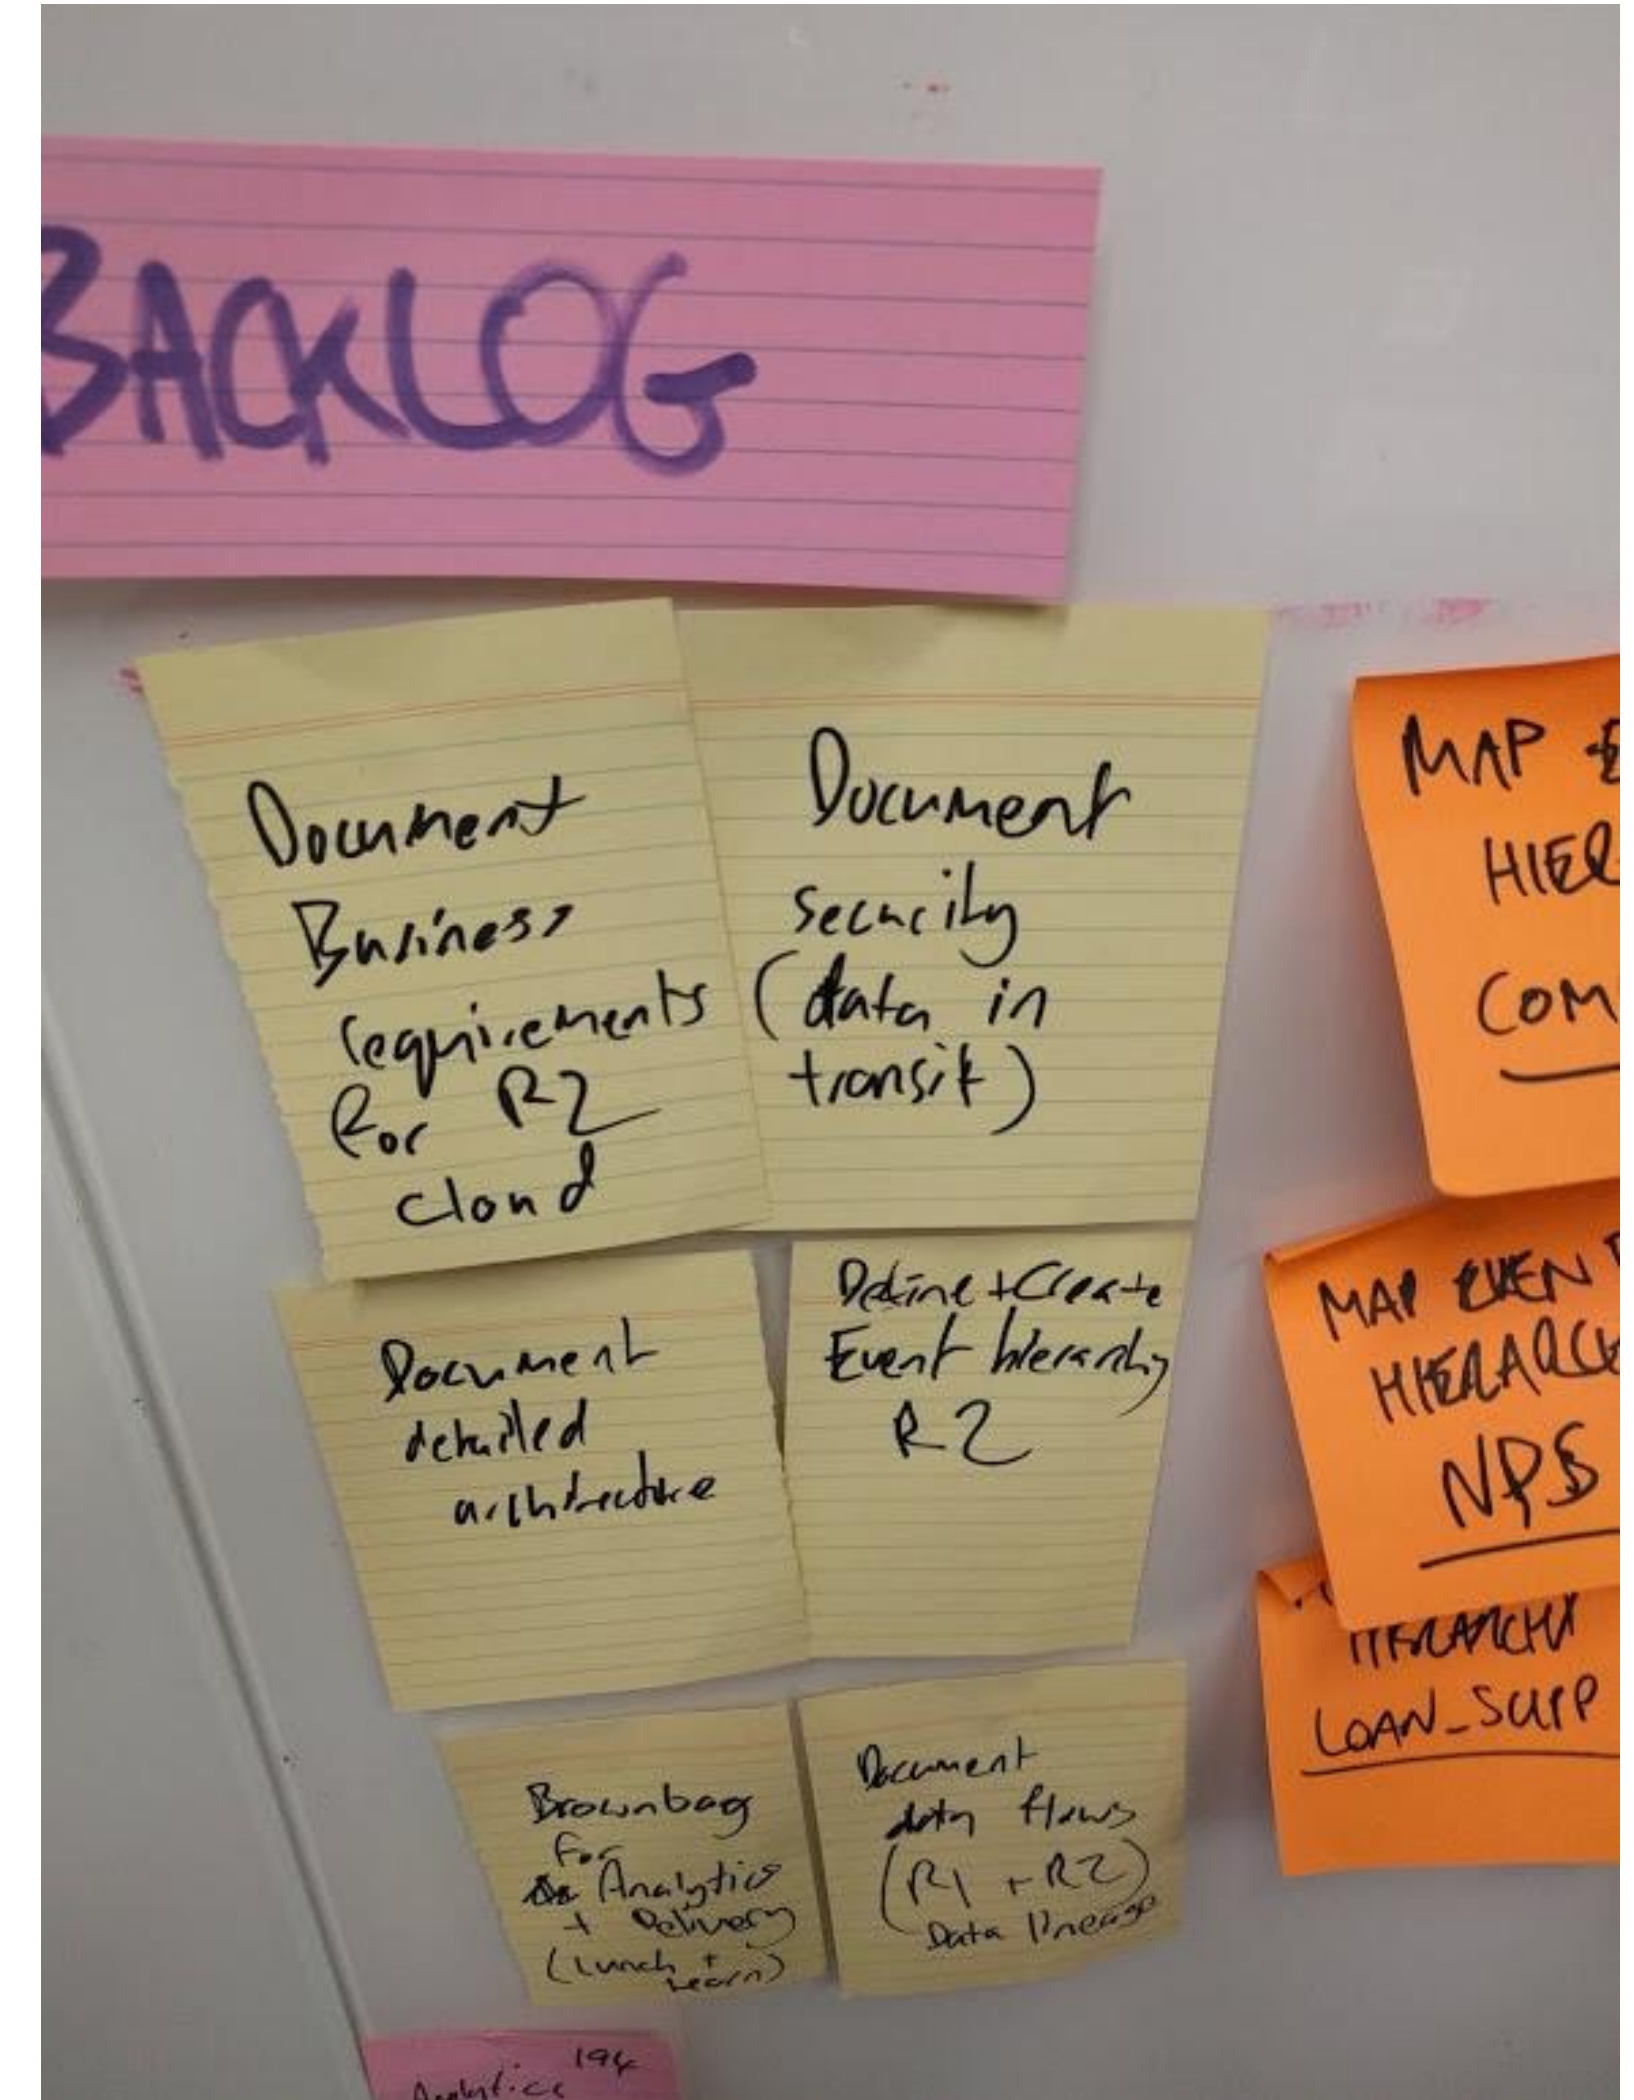 BACKLOG
Document
Business
requirements
for R2
cloud
Document
security
(data in
transit)
Document
detailed
architecture
Define + Create
Event hierarchy
R2
Brownbag
for
Analytics
+ Delivery
(Lunch +
Learn)
Document
data flows
(R1 + R2)
Data lineage
MAP E
HIER
COM
MAP EVENT
HIERARCH
NPS
HIERARCHY
LOAN_SUPP
Analytics